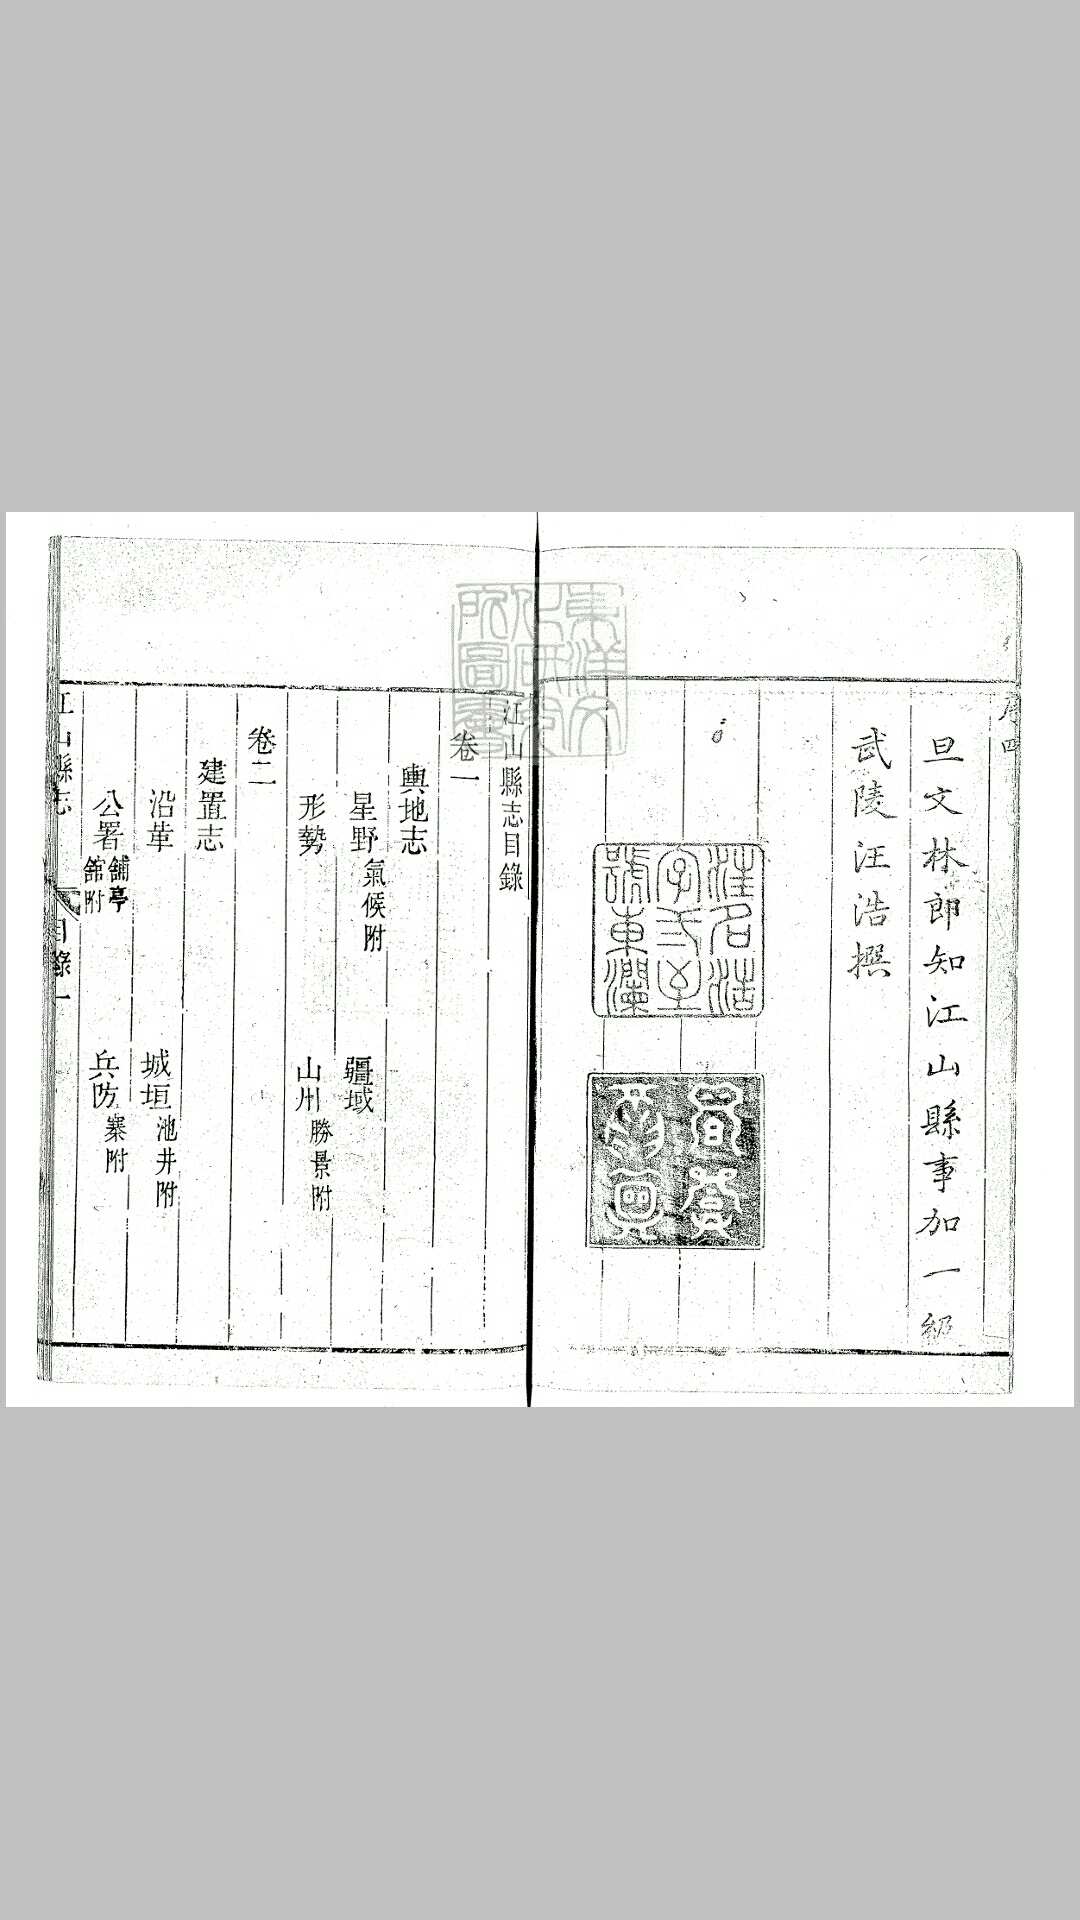 序四
旦文林郎知江山縣事加一級
武陵汪浩撰
汪名浩
字
號東瀾
東洋文
化研究
所圖書
江山縣志目錄
卷一
輿地志
星野氣候附 疆域
形勢 山川勝景附
卷二
建置志
沿革 城垣池井附
公署舖亭舘附 兵防寨附
江山縣志 目錄一